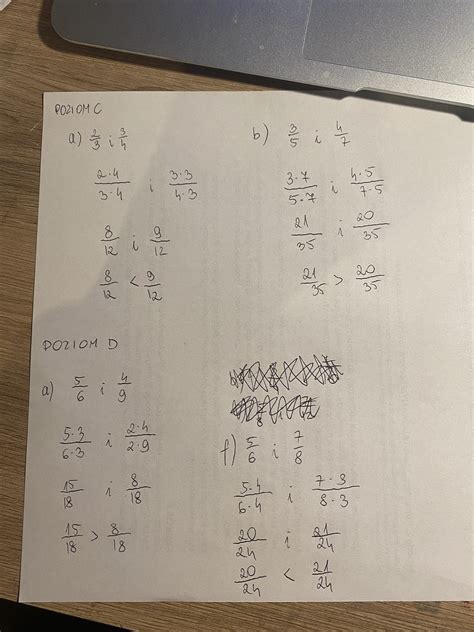 POZIOM C
a) 2/3 i 3/4
2·4/3·4 i 3·3/4·3
8/12 i 9/12
8/12 < 9/12
b) 3/5 i 4/7
3·7/5·7 i 4·5/7·5
21/35 i 20/35
21/35 > 20/35
POZIOM D
a) 5/6 i 4/9
5·3/6·3 i 2·4/2·9
15/18 i 8/18
15/18 > 8/18
f) 5/6 i 7/8
5·4/6·4 i 7·3/8·3
20/24 i 21/24
20/24 < 21/24